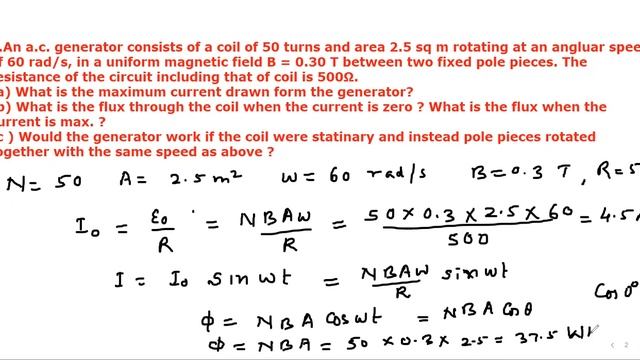 .An a.c. generator consists of a coil of 50 turns and area 2.5 sq m rotating at an angluar spee
f 60 rad/s, in a uniform magnetic field B = 0.30 T between two fixed pole pieces. The
esistance of the circuit including that of coil is 500Ω.
a) What is the maximum current drawn form the generator?
b) What is the flux through the coil when the current is zero ? What is the flux when the
urrent is max. ?
c ) Would the generator work if the coil were statinary and instead pole pieces rotated
ogether with the same speed as above ?
N = 50 A = 2.5 m² w = 60 rad/s B = 0.3 T , R = 5
I₀ = ε₀/R = NBAw/R = 50 × 0.3 × 2.5 × 60/500 = 4.5A
I = I₀ sin wt = NBAW/R sin wt
Cos 0°
ϕ = NBA Cos wt = NBA Cos θ
ϕ = NBA = 50 × 0.3 × 2.5 = 37.5 Wb
2